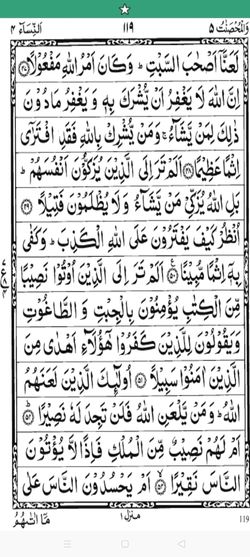 وَالْمُحْصَنٰت ۵ ۱۱۹ اَلنِّسَآء ۴
لَعَنَّاۤ اَصْحٰبَ السَّبْتِ ؕ وَ كَانَ اَمْرُ اللّٰهِ مَفْعُوْلًا ﴿۴۷﴾
اِنَّ اللّٰهَ لَا یَغْفِرُ اَنْ یُّشْرَكَ بِهٖ وَ یَغْفِرُ مَا دُوْنَ
ذٰلِكَ لِمَنْ یَّشَآءُ ۚ وَ مَنْ یُّشْرِكْ بِاللّٰهِ فَقَدِ افْتَرٰۤی
اِثْمًا عَظِیْمًا ﴿۴۸﴾ اَلَمْ تَرَ اِلَی الَّذِیْنَ یُزَكُّوْنَ اَنْفُسَهُمْ ؕ
بَلِ اللّٰهُ یُزَكِّیْ مَنْ یَّشَآءُ وَ لَا یُظْلَمُوْنَ فَتِیْلًا ﴿۴۹﴾
اُنْظُرْ كَیْفَ یَفْتَرُوْنَ عَلَی اللّٰهِ الْكَذِبَ ؕ وَ كَفٰی
بِهٖۤ اِثْمًا مُّبِیْنًا ﴿۵۰﴾ اَلَمْ تَرَ اِلَی الَّذِیْنَ اُوْتُوْا نَصِیْبًا
مِّنَ الْكِتٰبِ یُؤْمِنُوْنَ بِالْجِبْتِ وَ الطَّاغُوْتِ
وَ یَقُوْلُوْنَ لِلَّذِیْنَ كَفَرُوْا هٰۤؤُلَآءِ اَهْدٰی مِنَ
الَّذِیْنَ اٰمَنُوْا سَبِیْلًا ﴿۵۱﴾ اُولٰٓئِكَ الَّذِیْنَ لَعَنَهُمُ
اللّٰهُ ؕ وَ مَنْ یَّلْعَنِ اللّٰهُ فَلَنْ تَجِدَ لَهٗ نَصِیْرًا ﴿۵۲﴾
اَمْ لَهُمْ نَصِیْبٌ مِّنَ الْمُلْكِ فَاِذًا لَّا یُؤْتُوْنَ
النَّاسَ نَقِیْرًا ﴿۵۳﴾ اَمْ یَحْسُدُوْنَ النَّاسَ عَلٰی
مَاۤ اٰتٰىهُمُ منزل ۱
119